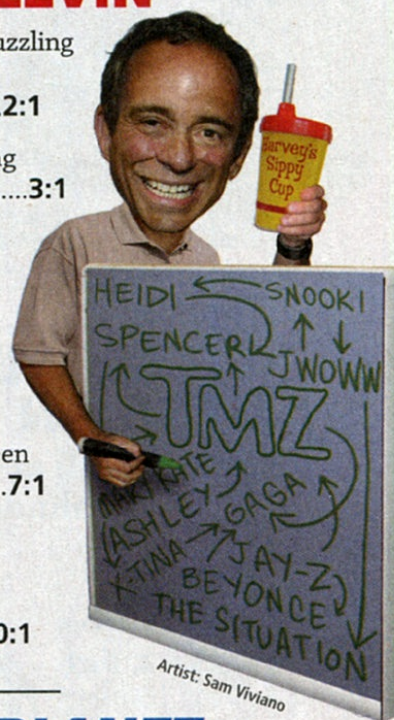 uzzling
.2:1
g
....3:1
en
.7:1
0:1
Harvey's
Sippy
Cup
HEIDI
SNOOKI
SPENCER
JWOWW
TMZ
MARY KATE
ASHLEY
GAGA
X-TINA
JAY-Z
BEYONCE
THE SITUATION
Artist: Sam Viviano